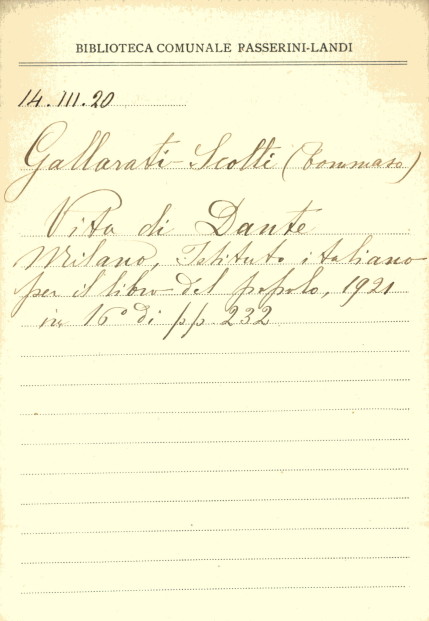 BIBLIOTECA COMUNALE PASSERINI-LANDI
14.III.20
Gallarati-Scotti (Tommaso)
Vita di Dante
Milano, Istituto italiano
per il libro del popolo, 1921
in 16° di pp. 232